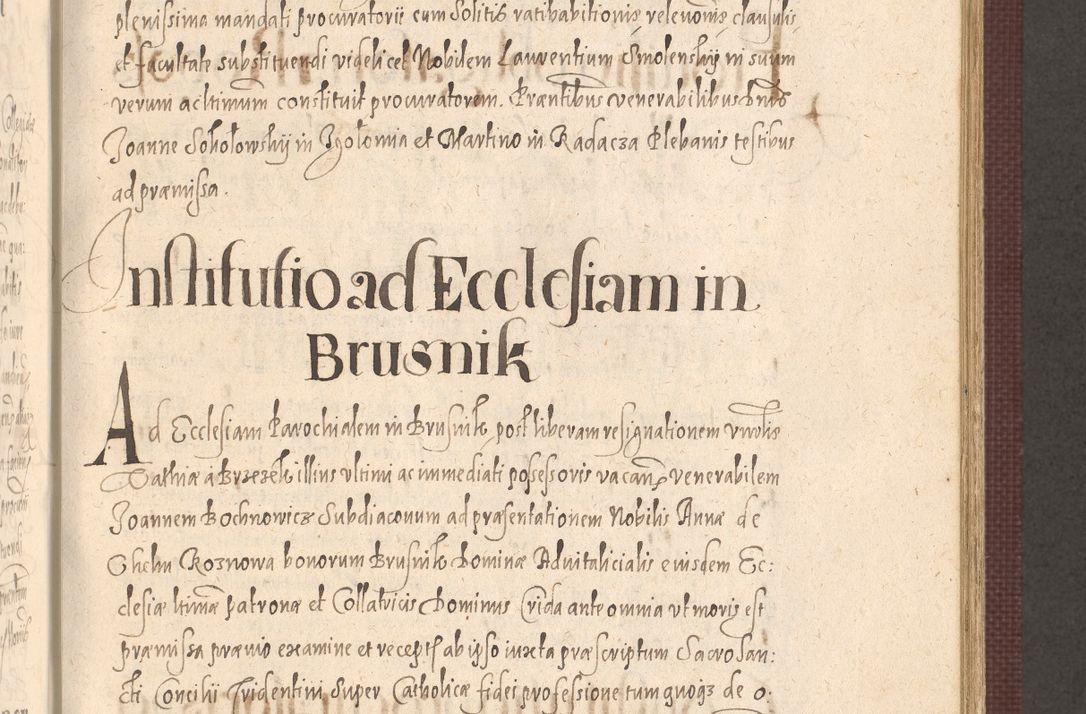 plenissima mandati procuratorii cum solitis ratihabitionis relevonis clausulis
et facultate substituendi videlicet Nobilem Laurentium Smolenskÿ in suum
verum ac ltimum constituit procuratorem. Præntibus venerabilibus Dnis
Joanne Sokołowskÿ in Igołomia et Martino in Radacza Plebanis testibus
ad præmissa.
Institutio ad Ecclesiam in
Brusnik
Ad Ecclesiam Parochialem in Brusnik post liberam resignationem Vnblis
Mathiæ a Brzezek illius vltimi ac immediati possessoris vacan venerabilem
Joannem Bochnowicz Subdiaconum ad præsentationem Nobilis Annæ de
Chelm Roznowa bonorum Brusnik Dominæ Advitalicialis eiusdem Ec:
clesiæ ltimæ patronæ et Collatricis Dominus Crida ante omnia vt moris est
præmissa prævio examine et recept ab ipso iuxta præscriptum Sacro San:
cti Concilii Tridentini super Catholicæ fidei professione tum quoqz de o: